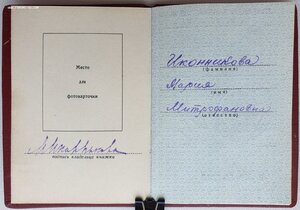 Место
для
фотокарточки
подпись владельца книжки
Иконникова
(фамилия)
Мария
(имя)
Митрофановна
(отчество)